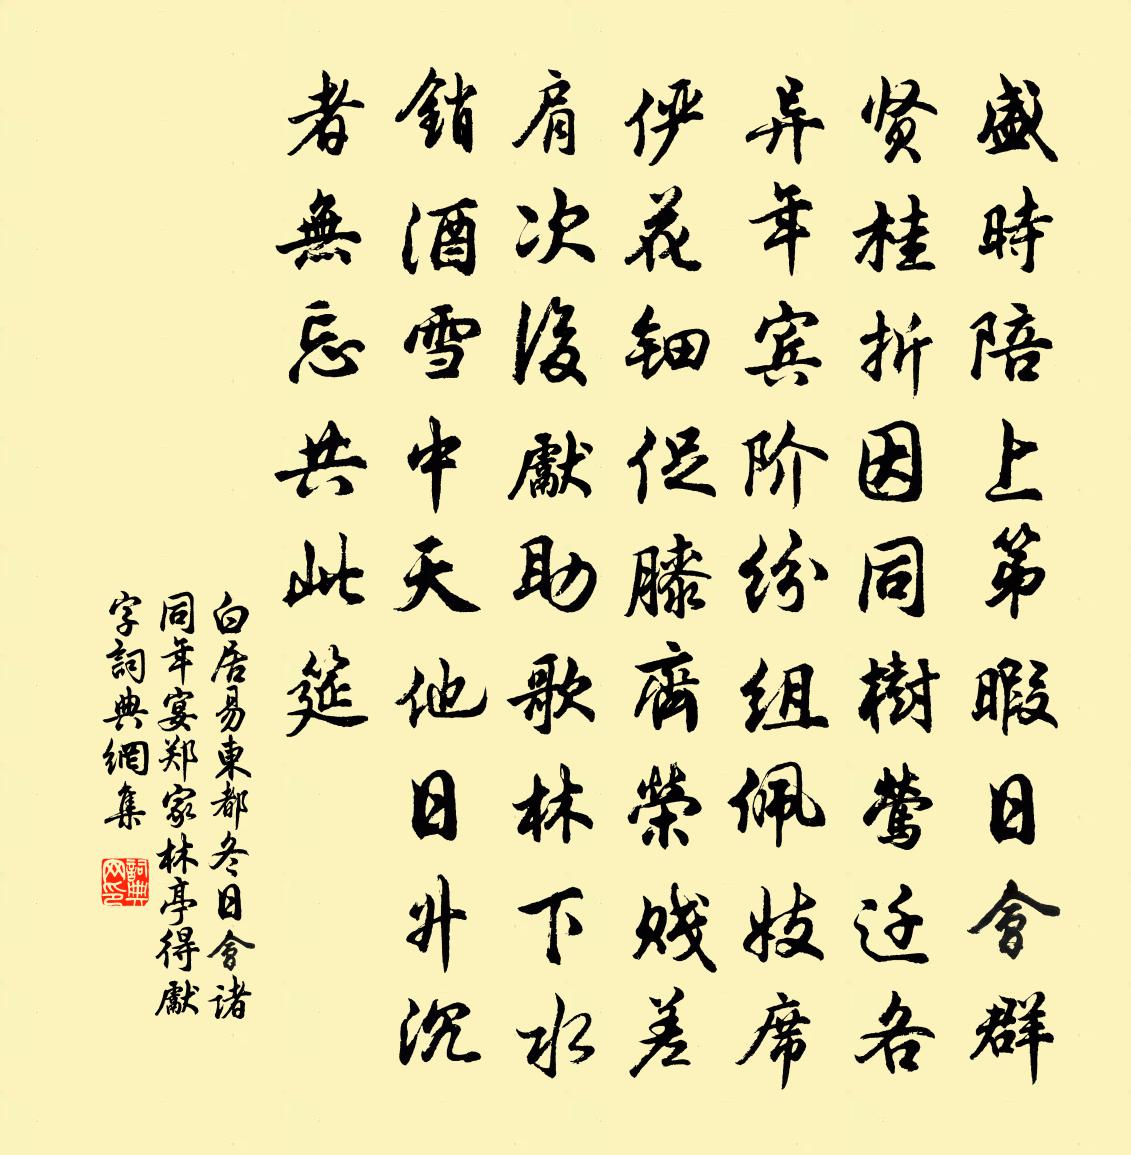 盛時陪上第暇日會群
贤桂折因同樹莺迁各
异年宾阶纷组佩妓席
俨花鈿促膝齊榮贱差
肩次後獻助歌林下水
銷酒雪中天他日升沉
者無忘共此筵
白居易東都冬日會諸
同年宴郑家林亭得獻
字詞典網集
詞典网印